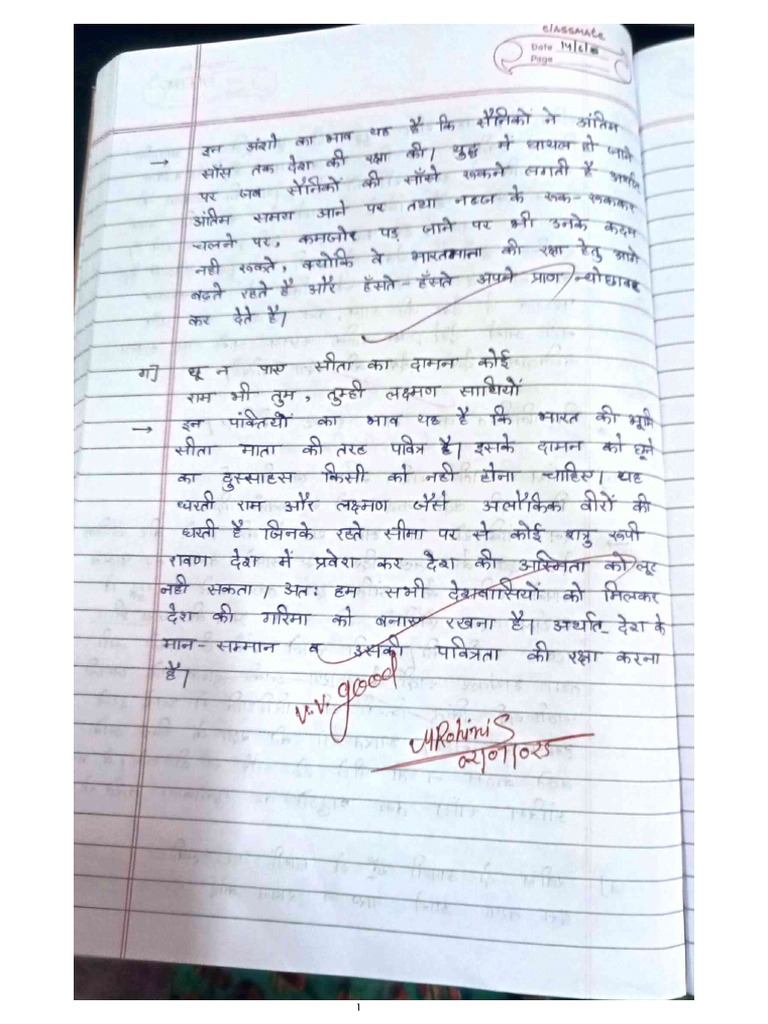 classmate
Date 14/6/25
Page
→ इन अंशो का भाव यह है कि सैनिकों ने अंतिम
साँस तक देश की रक्षा की। युद्ध में घायल हो जाने
पर जब सैनिकों की साँसे रूकने लगती है अर्थात
अंतिम समय आने पर तथा नब्ज के रूक-रूककर
चलने पर, कमजोर पड़ जाने पर भी उनके कदम
नही रूकते, क्योकि वे भारतमाता की रक्षा हेतु आगे
बढ़ते रहते है और हँसते-हँसते अपने प्राण न्योछावर
कर देते है।
ग] छू न पाए सीता का दामन कोई
राम भी तुम, तुम्ही लक्ष्मण साथियों
→ इन पंक्तियों का भाव यह है कि भारत की भूमि
सीता माता की तरह पवित्र है। इसके दामन को छूने
का दुस्साहस किसी को नही होना चाहिए। यह
धरती राम और लक्ष्मण जैसे अलौकिक वीरों की
धरती है जिनके रहते सीमा पर से कोई शत्रु रूपी
रावण देश में प्रवेश कर देश की अस्मिता को लूट
नही सकता अतः हम सभी देशवासियों को मिलकर
देश की गरिमा को बनाए रखना है। अर्थात देश के
मान-सम्मान व उसकी पवित्रता की रक्षा करना
है।
v.v. good
MRohiniS
02/07/025
1